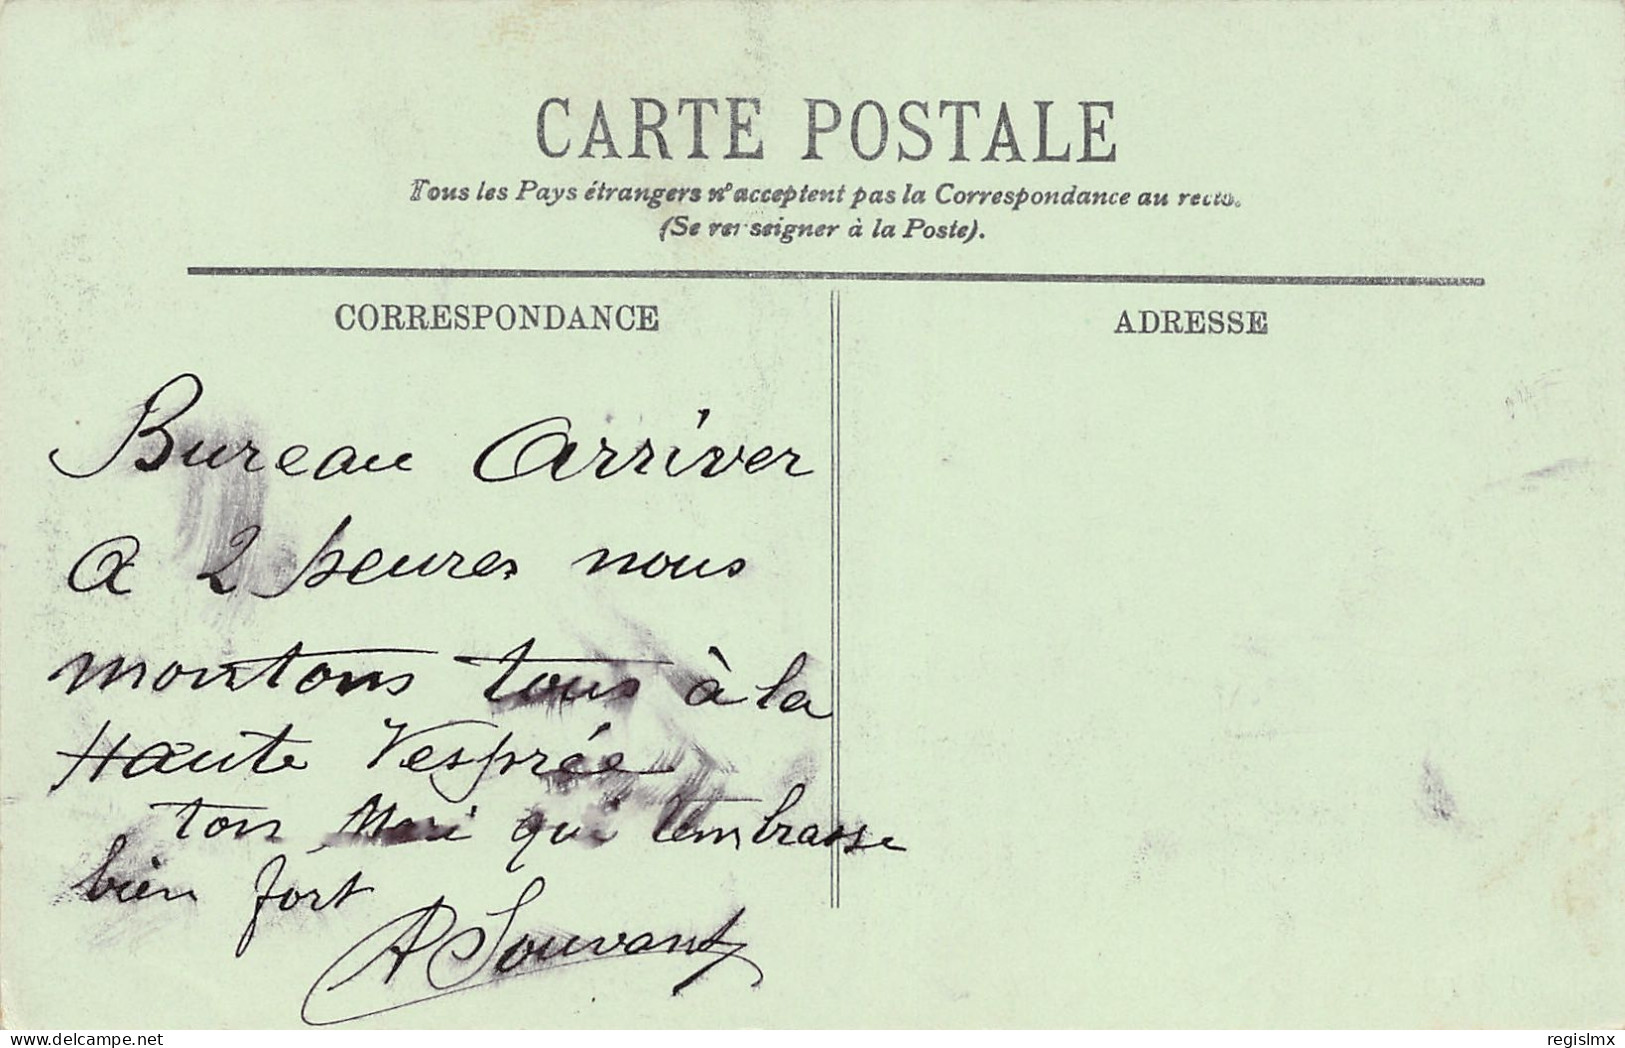 CARTE POSTALE
Tous les Pays étrangers n'acceptent pas la Correspondance au recto.
(Se renseigner à la Poste).
CORRESPONDANCE
ADRESSE
Bureau Arriver
a 2 heures nous
montons tous à la
Haute Vesprée
ton Mari qui t'embrasse
bien fort
A Souvant
delcampe.net
regislmx